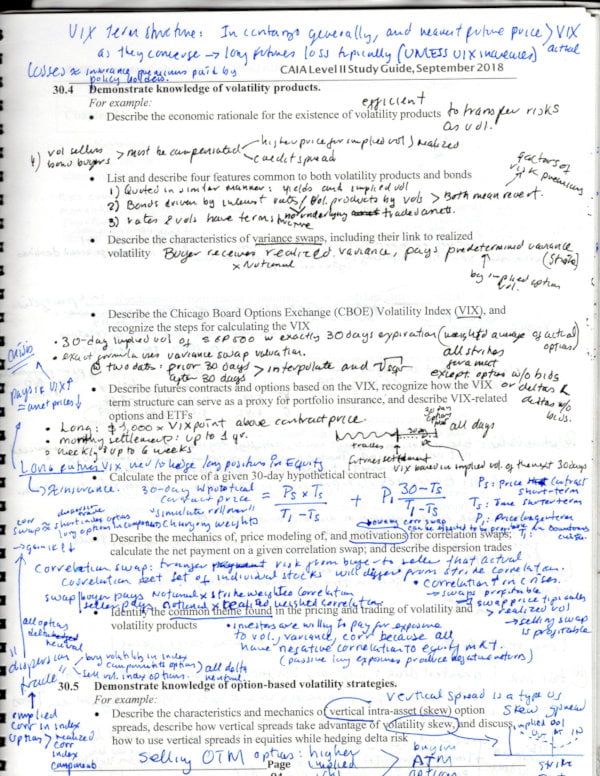 VIX term structure: In contango generally, and nearest future price > VIX
as they converge → long futures loss typically (UNLESS VIX increases) actual
losses ≈ insurance premiums paid by
policy holders.
CAIA Level II Study Guide, September 2018
30.4 Demonstrate knowledge of volatility products.
For example:
efficient
• Describe the economic rationale for the existence of volatility products to transfer risks
as vol.
4) vol sellers > must be compensated < higher price for implied vol > realized
bond buyers credit spread
factors of
risk premiums
• List and describe four features common to both volatility products and bonds
1) Quoted in similar manner: yields and implied vol
2) Bonds driven by interest rates / Vol. products by vols > Both mean revert.
3) rates & vols have term structure no underlying traded assets.
• Describe the characteristics of variance swaps, including their link to realized
volatility Buyer receives realized variance, pays predetermined variance
x Notional (Strike)
by implied option
vol.
• Describe the Chicago Board Options Exchange (CBOE) Volatility Index (VIX), and
recognize the steps for calculating the VIX
• 30-day implied vol of S&P500 w exactly 30 days expiration (weighted average of actual
options)
crisis
• exact formula uses variance swap valuation. all strikes
② two data: prior 30 days > interpolate and
after 30 days
except options w/o bids
pays if VIX ↑
= asset prices ↓
• Describe futures contracts and options based on the VIX, recognize how the VIX
term structure can serve as a proxy for portfolio insurance, and describe VIX-related
options and ETFs
• Long: $1,000 × VIX point above contract price.
• monthly settlement: up to 1 yr.
• weekly: up to 6 weeks
all days
futures settlement
VIX based in implied vol of the next 30 days
Long futures VIX used to hedge long positions in Equity
→ ≈ insurance.
• Calculate the price of a given 30-day hypothetical contract
30-day hypothetical
contract price = Ps × Ts / T1 - Ts + P1 30 - Ts / T1 - Ts
"simulate rollover"
changing weights
Ps: Price contract
short-term
Ts: Time shorter term
P1: Price longer term
• Describe the mechanics of, price modeling of, and motivations for correlation swaps;
calculate the net payment on a given correlation swap; and describe dispersion trades
corr
swap ≈ short index options
long options in components
→ gains if ↓
Correlation swap: transfer risk from buyer to seller that actual
correlation bet set of individual stocks will differ from strike correlation.
• correlation ↑ in crises.
→ swaps profitable
swap buyer pays Notional × strike weighted correlation
seller pays notional × realized weighted correlation
→ swap price typically
> realized vol
→ selling swap
is profitable
• Identify the common theme found in the pricing and trading of volatility and
volatility products
• investors are willing to pay for exposure
to vol, variance, corr because all
have negative correlation to equity mkt.
(passive long exposures produce negative returns)
all options
delta
neutral
dispersion
trade
buy volatility in index
components options
sell vol. index options. all delta
neutral.
implied
corr in index
options > realized
corr
index
components
30.5 Demonstrate knowledge of option-based volatility strategies.
For example:
vertical spread is a type of
skew spread
• Describe the characteristics and mechanics of vertical intra-asset (skew) option
spreads, describe how vertical spreads take advantage of volatility skew, and discuss
how to use vertical spreads in equities while hedging delta risk
implied vol
strike
selling OTM options: higher
implied
buying
ATM
options
Page